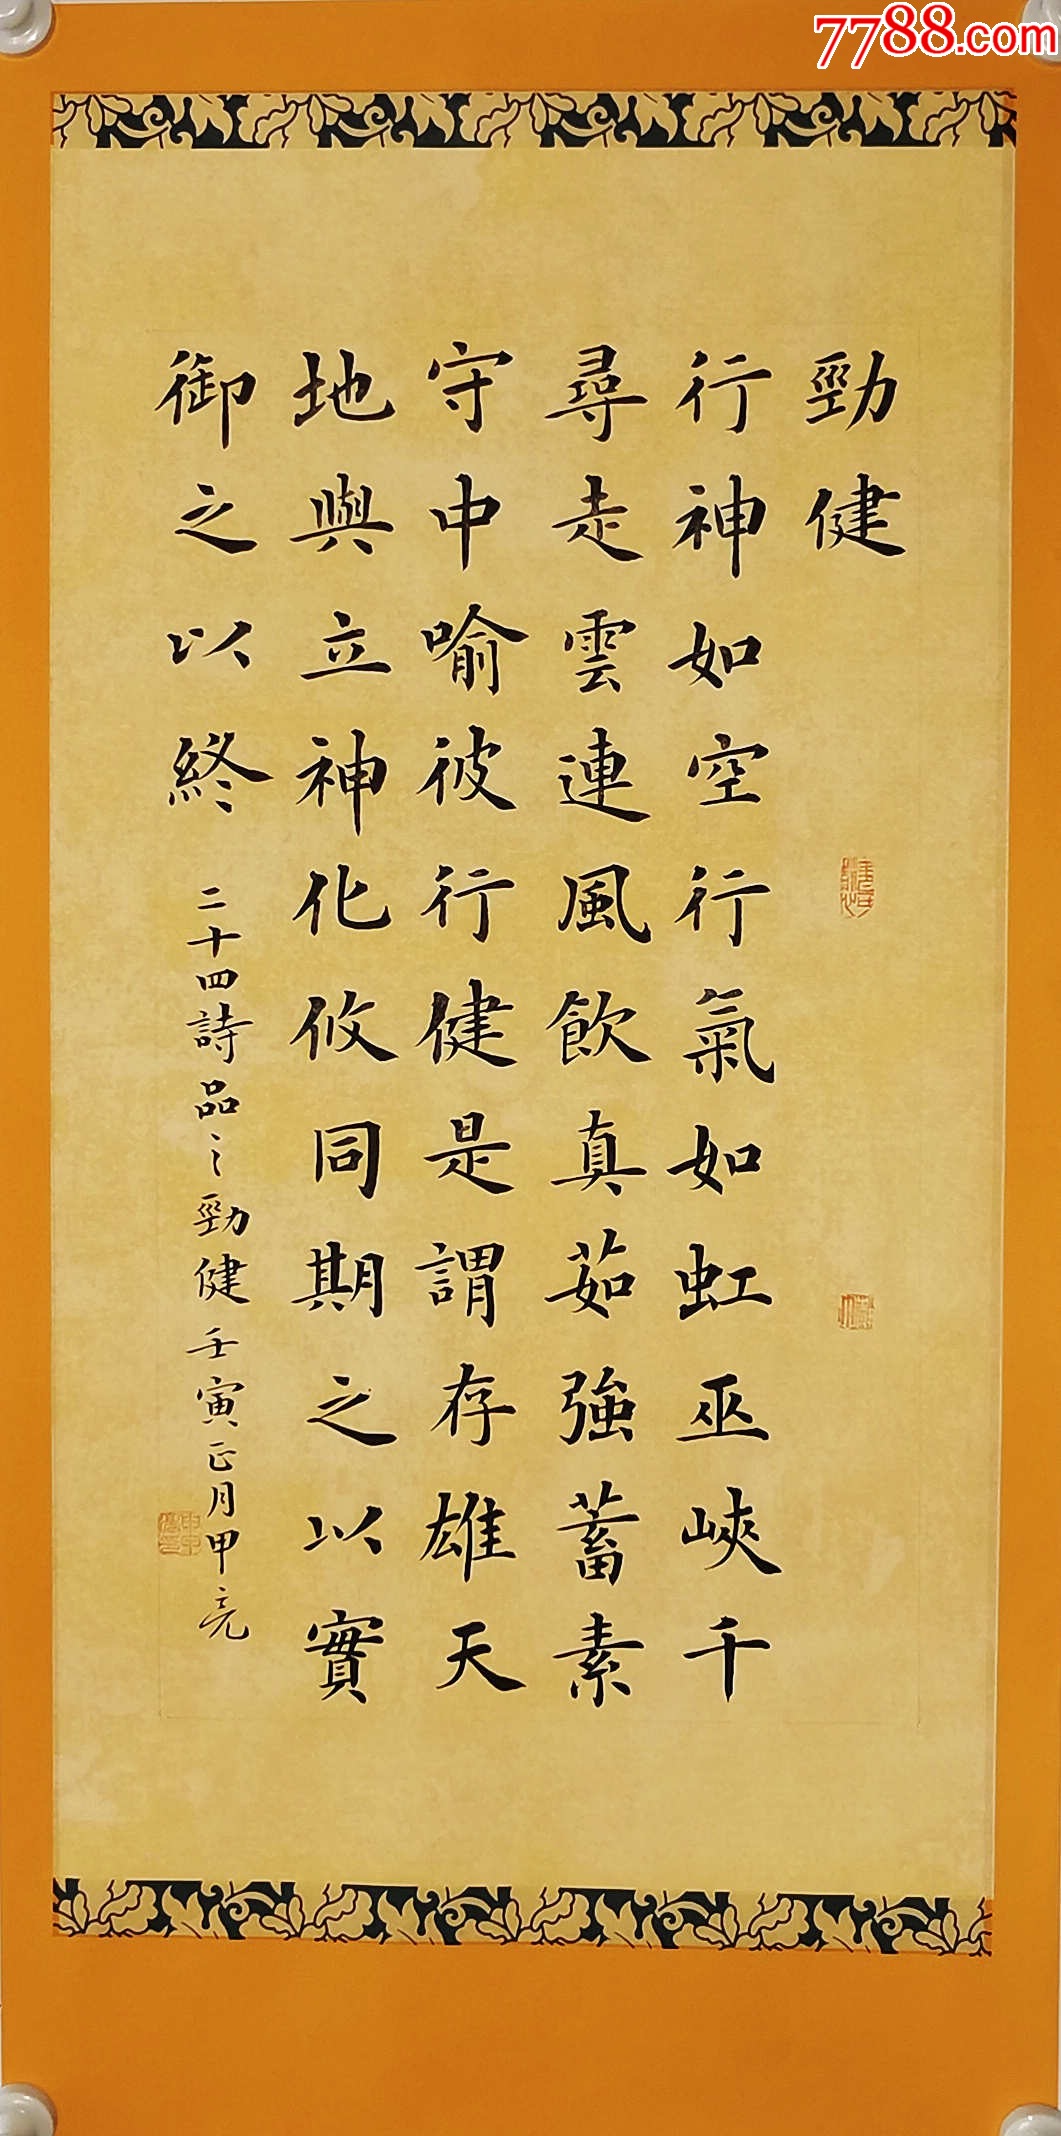 7788.com
勁健
行神如空行氣如虹巫峽千
尋走雲連風飲真茹強蓄素
守中喻彼行健是謂存雄天
地與立神化攸同期之以實
御之以終
二十四詩品之勁健壬寅正月甲亮